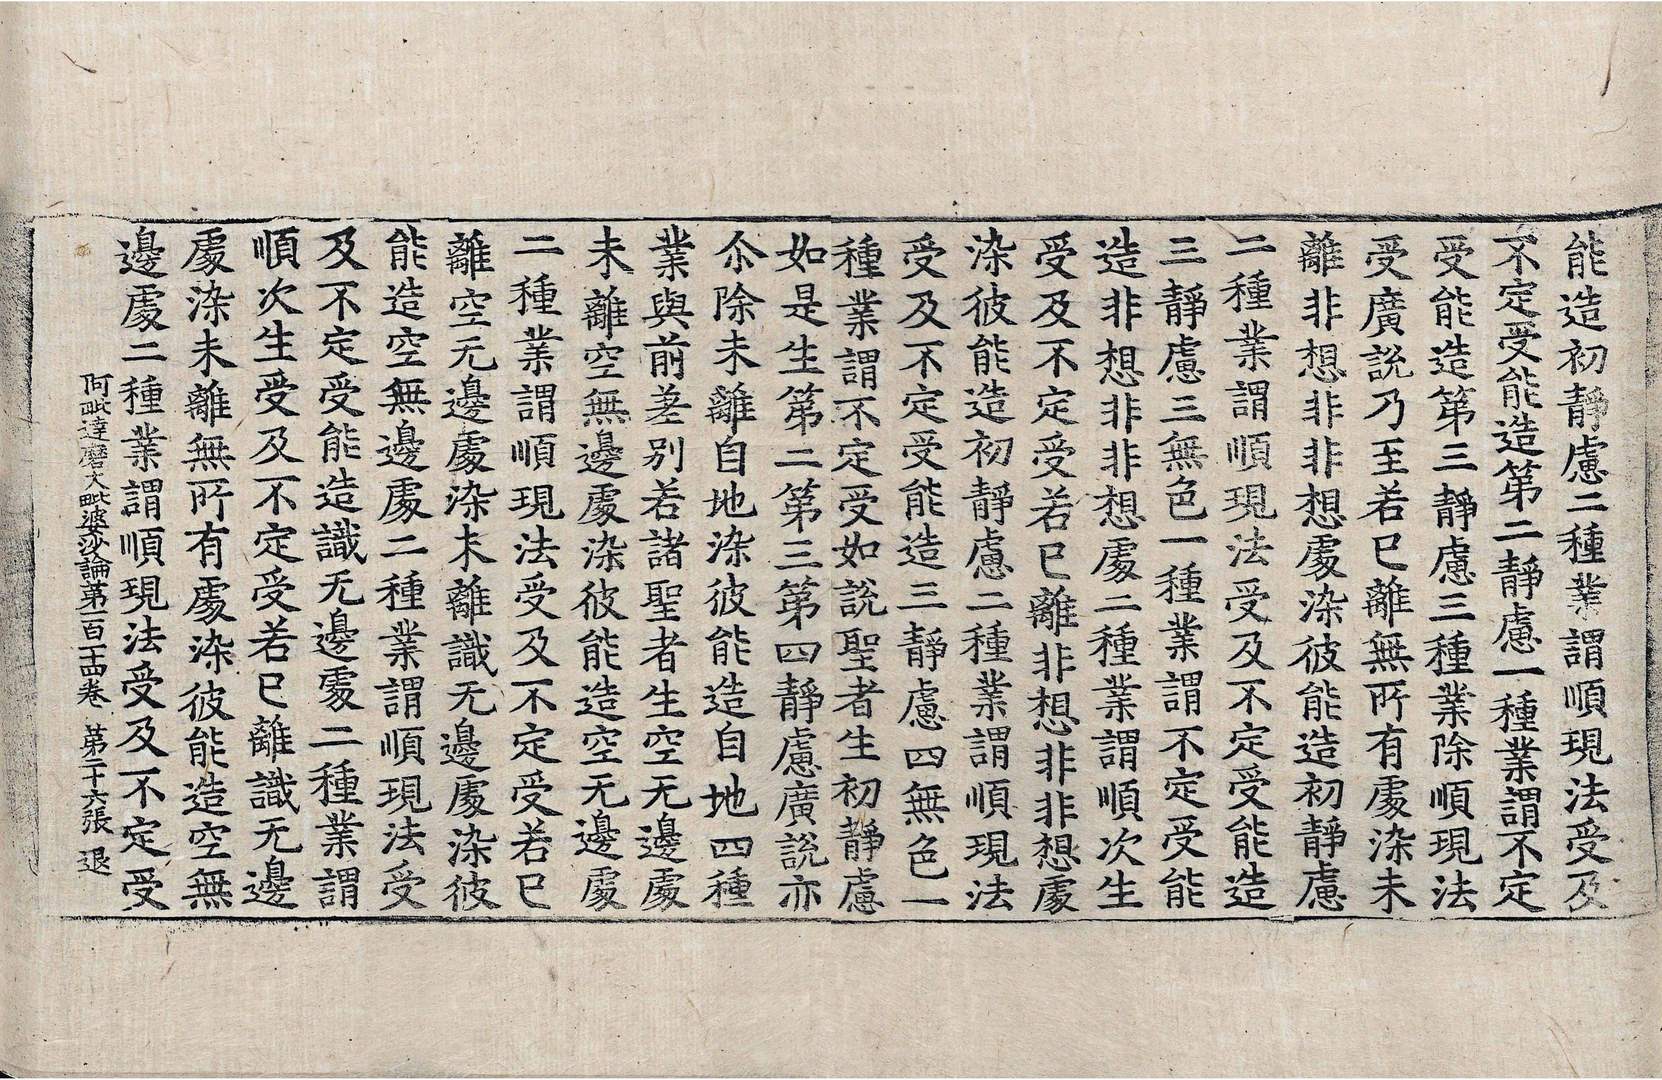 能造初靜慮二種業謂順現法受及
不定受能造第二靜慮一種業謂不定
受能造第三靜慮三種業除順現法
受廣說乃至若已離無所有處染未
離非想非非想處染彼能造初靜慮
二種業謂順現法受及不定受能造
三靜慮三無色一種業謂不定受能
造非想非非想處二種業謂順次生
受及不定受若已離非想非非想處
染彼能造初靜慮二種業謂順現法
受及不定受能造三靜慮四無色一
種業謂不定受如說聖者生初靜慮
如是生第二第三第四靜慮廣說亦
尒除未離自地染彼能造自地四種
業與前差別若諸聖者生空无邊處
未離空無邊處染彼能造空无邊處
二種業謂順現法受及不定受若已
離空无邊處染未離識无邊處染彼
能造空無邊處二種業謂順現法受
及不定受能造識无邊處二種業謂
順次生受及不定受若已離識无邊
處染未離無所有處染彼能造空無
邊處二種業謂順現法受及不定受
阿毗達磨大毗婆沙論第一百一十四卷 第二十六張 退